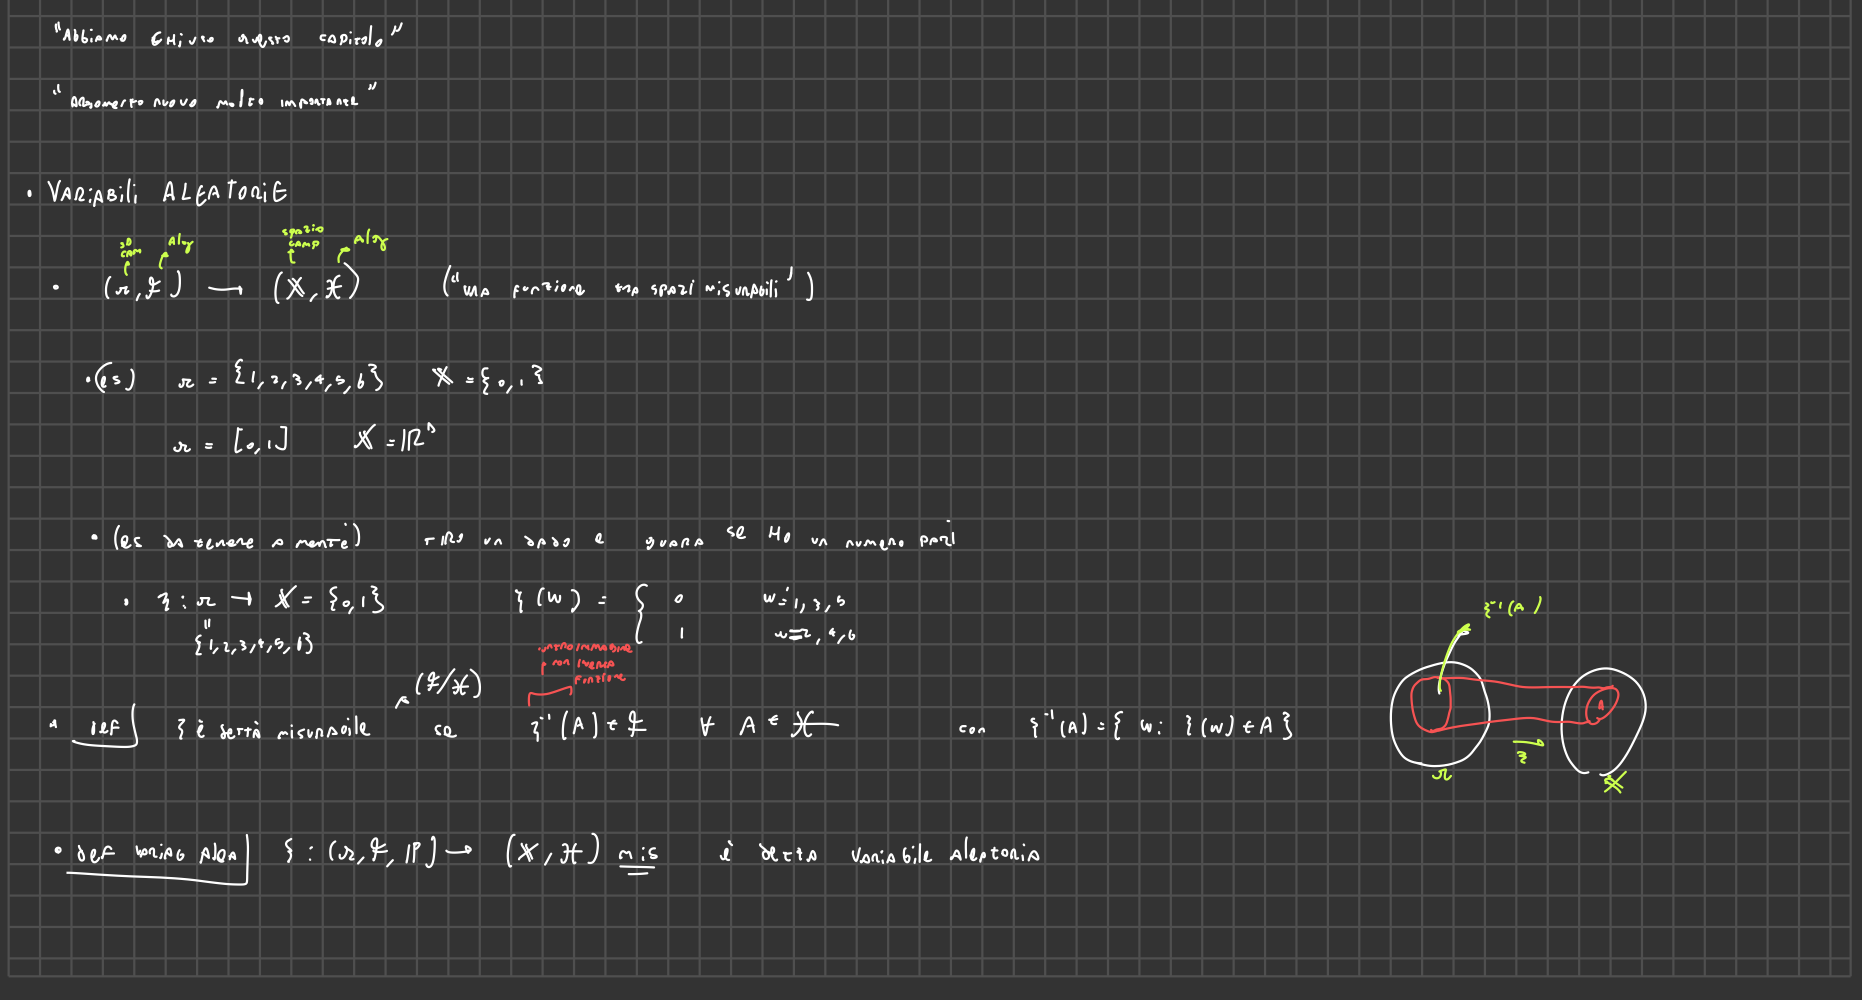 "Abbiamo CHiuso questo capitolo"
"Argomento nuovo molto importante"
• VARiABili ALEATORiE
spazio camp Alg
• (Ω, F) → (X, H) ("una funzione tra spazi misurabili")
•(es) Ω = {1,2,3,4,5,6} X = {0,1}
Ω = [0,1] X = ℝ
• (es da tenere a mente) TIRO un dado e guardo se Ho un numero pari
• ξ : Ω → X = {0,1} ξ(w) = { 0 w=1,3,5
" 1 w=2,4,6
{1,2,3,4,5,6}
controimmagine non inversa funzione
(F/H)
• def ξ è detta misurabile se ξ⁻¹(A) ∈ F ∀ A ∈ H con ξ⁻¹(A) = { w: ξ(w) ∈ A }
ξ⁻¹(A)
A
ξ
Ω X
• def variab alea ξ : (Ω, F, IP) → (X, H) mis è detta variabile aleatoria